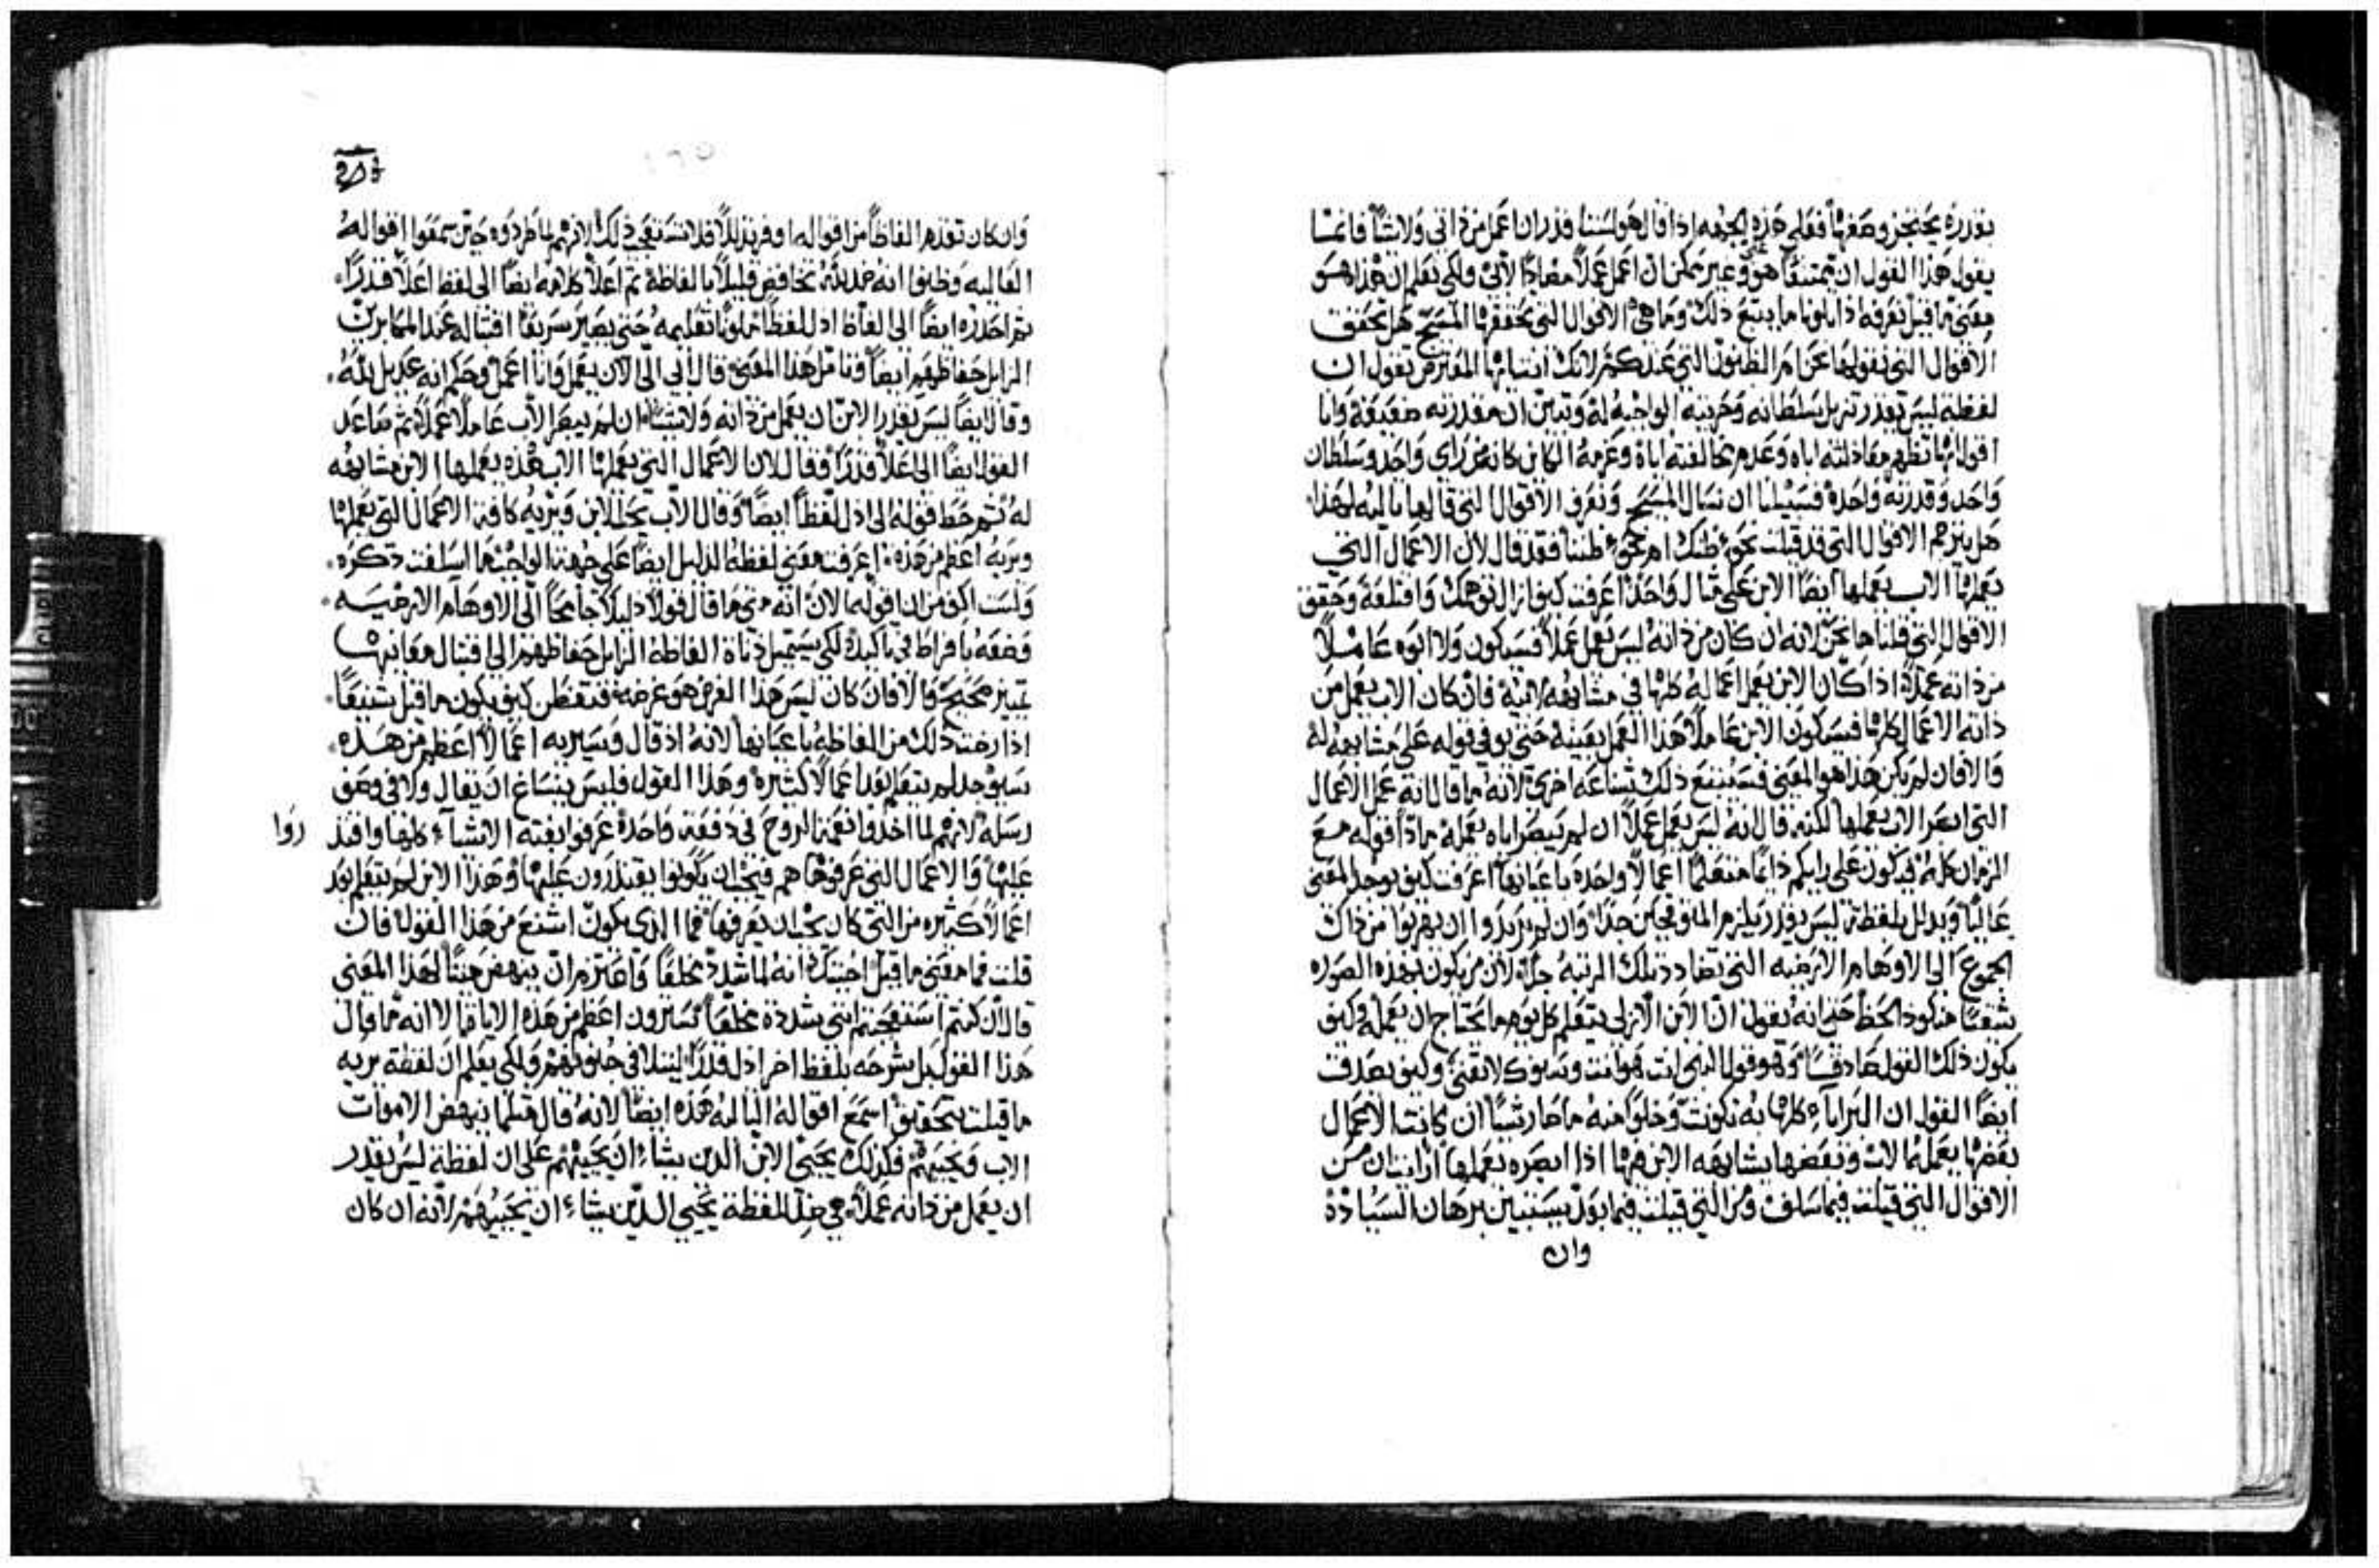 يقول هذا القول ان ممتنعًا هو وغير ممكن ان اعمل عملاً مضادًا لابي ولكي نعلم ان هذا هو
معنى ما قيل نعرفه اذا تلونا ما يتبع ذلك وما هي الاقوال التي يحققها المسيح هل يحقق
الاقوال التي نقولها نحن ام الظنون التي عندكم لانك انت ايها المفترض تقول ان
لفظة ليس يقدر تزيل سلطانه وحريته الواجبة له وتبين ان مقدرته ضعيفة وانا
اقول انها تظهر معادلته اباه وعدم مخالفته اياه وعزمه الكاين كانه من راي واحد وسلطان
واحد وقدرة واحدة فسبيلنا ان نسال المسيح ونعرف الاقوال التي قالها تاليه لهذا
هل يترجم الاقوال التي قد قيلت نحو ظنك ام نحو ظننا فقد قال لان الاعمال التي
يعملها الاب يعملها ايضًا الابن على مثال واحد اعرفت كيف ازال توهمك واقتلعه وحقق
الاقوال التي قلناها نحن لانه ان كان من ذاته ليس يعمل عملاً فسيكون ولا ابوه عاملاً
من ذاته عملاً اذا كان الابن يعمل اعماله كلها في مشابهة ابيه فان كان الاب يعمل من
ذاته الاعمال كلها فسيكون الابن عاملاً هذا العمل بعينه حتى يوفي قوله على مشابهة له
والا فان لم يكن هذا هو المعنى فستتبع ذلك شناعة اخرى لانه ما قال انه عمل الاعمال
التي ابصر الاب يعملها لكنه قال انه ليس يعمل عملاً ان لم يبصر اباه يعمله ماذا قوله مع
الزمان كله فيكون على رايكم دايمًا متعلمًا اعمالاً واحدة باعيانها اعرفت كيف يوجد المعنى
عاليًا
الجموع الى الاوهام الارضيه التي تضاد تلك الرتبة جدًا لان من يكون بهذه الصوره
شقيًا منكود الحظ حتى انه يقول ان الابن الازلي يتعلم كل يوم ما يحتاج ان يعمله وكيف
يكون ذلك القول صادقًا وهو قول النبي انت هو انت وسنوك لا تفنى وكيف يصدق
ايضًا القول ان البرايا كلها به تكونت وخلوًا منه ما صار شيًا ان كانت الاعمال
بعضها يعملها الاب وبعضها يشابهه الابن بها اذا ابصره يعملها ارايت ان من
الاقوال التي قيلت فيما سلف ومن التي قيلت فيما بعد يستبين برهان السيادة
وان
وان كان تقدم الفاظًا من اقواله اوفر تذللاً فلا تستقبح ذلك لانهم لما طردوه حين سمعوا اقواله
العاليه وظنوا انه ضد لله تخافض قليلاً بالفاظه ثم اعلا كلامه ايضًا الى لفظ اعلا قدرًا
ثم احدره ايضًا الى الفاظ اذل لفظًا ملونًا تعليمه حتى يصير سريعًا اقتباله عند المكابرين
الزايل حفاظهم ايضًا وتامل هذا المعنى قال ابي الى الان يعمل وانا اعمل وحكم انه عديل لله
وقال ايضًا ليس يقدر الابن ان يعمل من ذاته ولا شيًا ان لم يبصر الاب عاملاً عملاً ثم صاعد
القول ايضًا الى اعلا قدرًا فقال لان الاعمال التي يعملها الاب هذه يعملها الابن مشابهه
له ثم حط قوله الى اذل لفظًا ايضًا وقال الاب يحب الابن ويريه كافة الاعمال التي يعملها
ويريه اعظم من هذه اعرفت معنى لفظه الذليل ايضًا على جهته الواجبه ما اسلفت ذكره
ولست اكف من ان اقوله الان انه متى ما قال قولاً ذليلاً جامحًا الى الاوهام الارضيه
وضعه بافراط في تاكيده لكي يستميل دناة الفاظه الزايل حفاظهم الى اقتبال معانيها
بتمييز صحيح والا فان كان ليس هذا الغرض هو غرضه فتفطن كيف يكون ما قيل شنيعًا
اذا رصدت ذلك من الفاظه باعيانها لانه اذ قال وسيريه اعمالاً اعظم من هذه
سيوجد لم يتعلم بعد اعمالاً كثيرة وهذا القول فليس ينساغ ان يقال ولا في وصف
رسله لانهم لما اخذوا نعمة الروح في دفعة واحدة عرفوا بغتة الاشياء كلها واقتدروا
عليها والاعمال التي عرفوها هم فيجب ان يكونوا يقتدرون عليها وهذا الابن لم يتعلم بعد
اعمالاً كثيره من التي كان يجب ان يعرفها فما الذي يكون اشنع من هذا القول فان
قلت فما معنى ما قيل اجبتك انه لما شدد مخلعًا واعتزم ان ينهض ميتًا لهذا المعنى
قال ان كنتم استعجبتم انني شددت مخلعًا سترون اعظم من هذه الايات الا انه ما قال
هذا القول بل شرحه بلفظ اخر اذل قدرًا ليتلافى جنونهم ولكي يعلم ان لفظة يريه
ما قيلت بتحقيق اسمع اقواله التاليه هذه ايضًا لانه قال مثلما ينهض الاموات
الاب ويحييهم فكذلك يحيي الابن الذين يشاء ان يحييهم على ان لفظة ليس يقدر
ان يعمل من ذاته عملاً هي ضد للفظة يحيي الذين يشاء ان يحييهم لانه ان كان